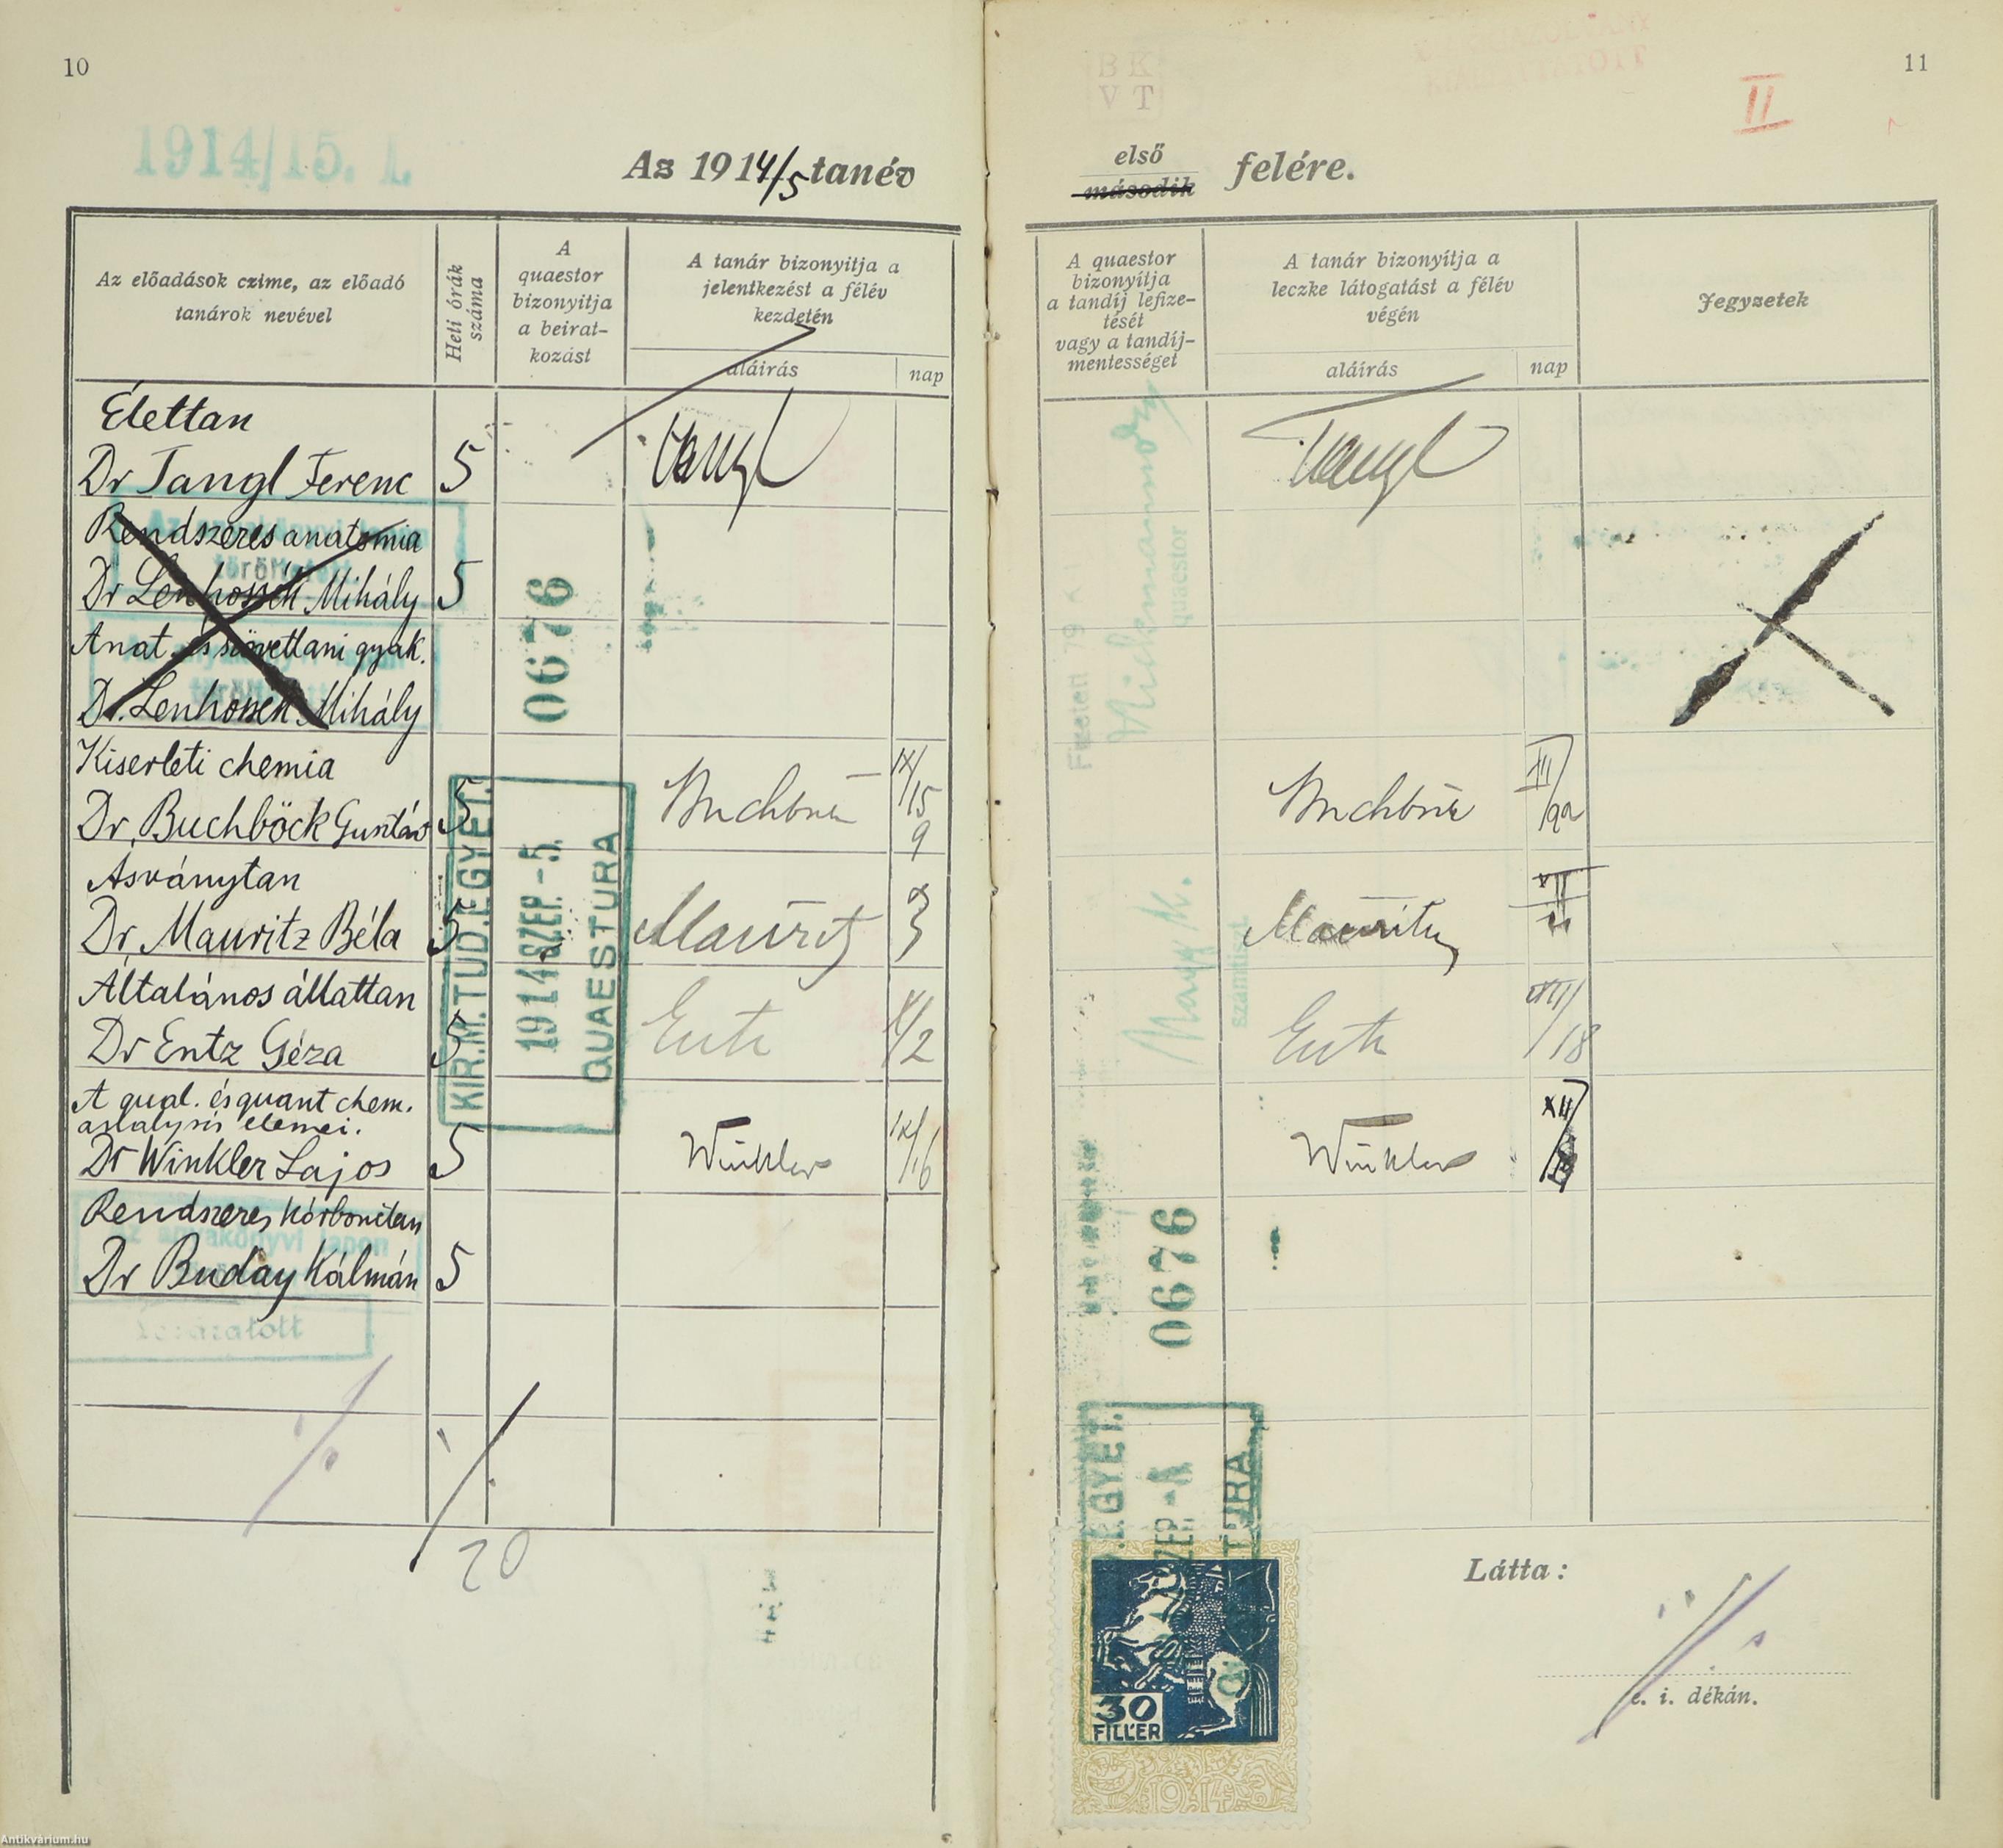 10
1914/15. I.
Az 1914/5 tanév
Az előadások czime, az előadó
tanárok nevével
Heti órák
száma
A
quaestor
bizonyitja
a beirat-
kozást
A tanár bizonyitja a
jelentkezést a félév
kezdetén
aláirás
nap
Élettan
Dr Tangl Ferenc 5
Tangl
Rendszeres anatomia
Dr Lenhossék Mihály 5
Anat. és szövettani gyak.
Dr. Lenhossék Mihály
0676
Kiserleti chemia
Dr. Buchböck Gusztáv 5
Buchböck
IX/15
9
Ásványtan
Dr. Mauritz Béla 5
Mauritz
Általános állattan
Dr Entz Géza 5
Entz
X/2
A qual. és quant chem.
analysis elemei.
Dr Winkler Lajos 5
Winkler
IX/16
KIR. M. TUD. EGYET.
1914 SZEP. -5.
QUAESTURA
Rendszeres kórboncztan
Dr Buday Kálmán 5
20
11
B K
V T
II
első
második felére.
A quaestor
bizonyítja
a tandíj lefize-
tését
vagy a tandíj-
mentességet
A tanár bizonyítja a
leczke látogatást a félév
végén
aláírás
nap
Jegyzetek
Tangl
quaestor
Fizetett
Buchböck
XII/22
Mauritz
Nagy K.
számtiszt
Entz
XII/18
Winkler
XII
0676
EGYET.
SZEP
TURA
30
FILLÉR
1914
Látta:
e. i. dékán.
Antikvárium.hu